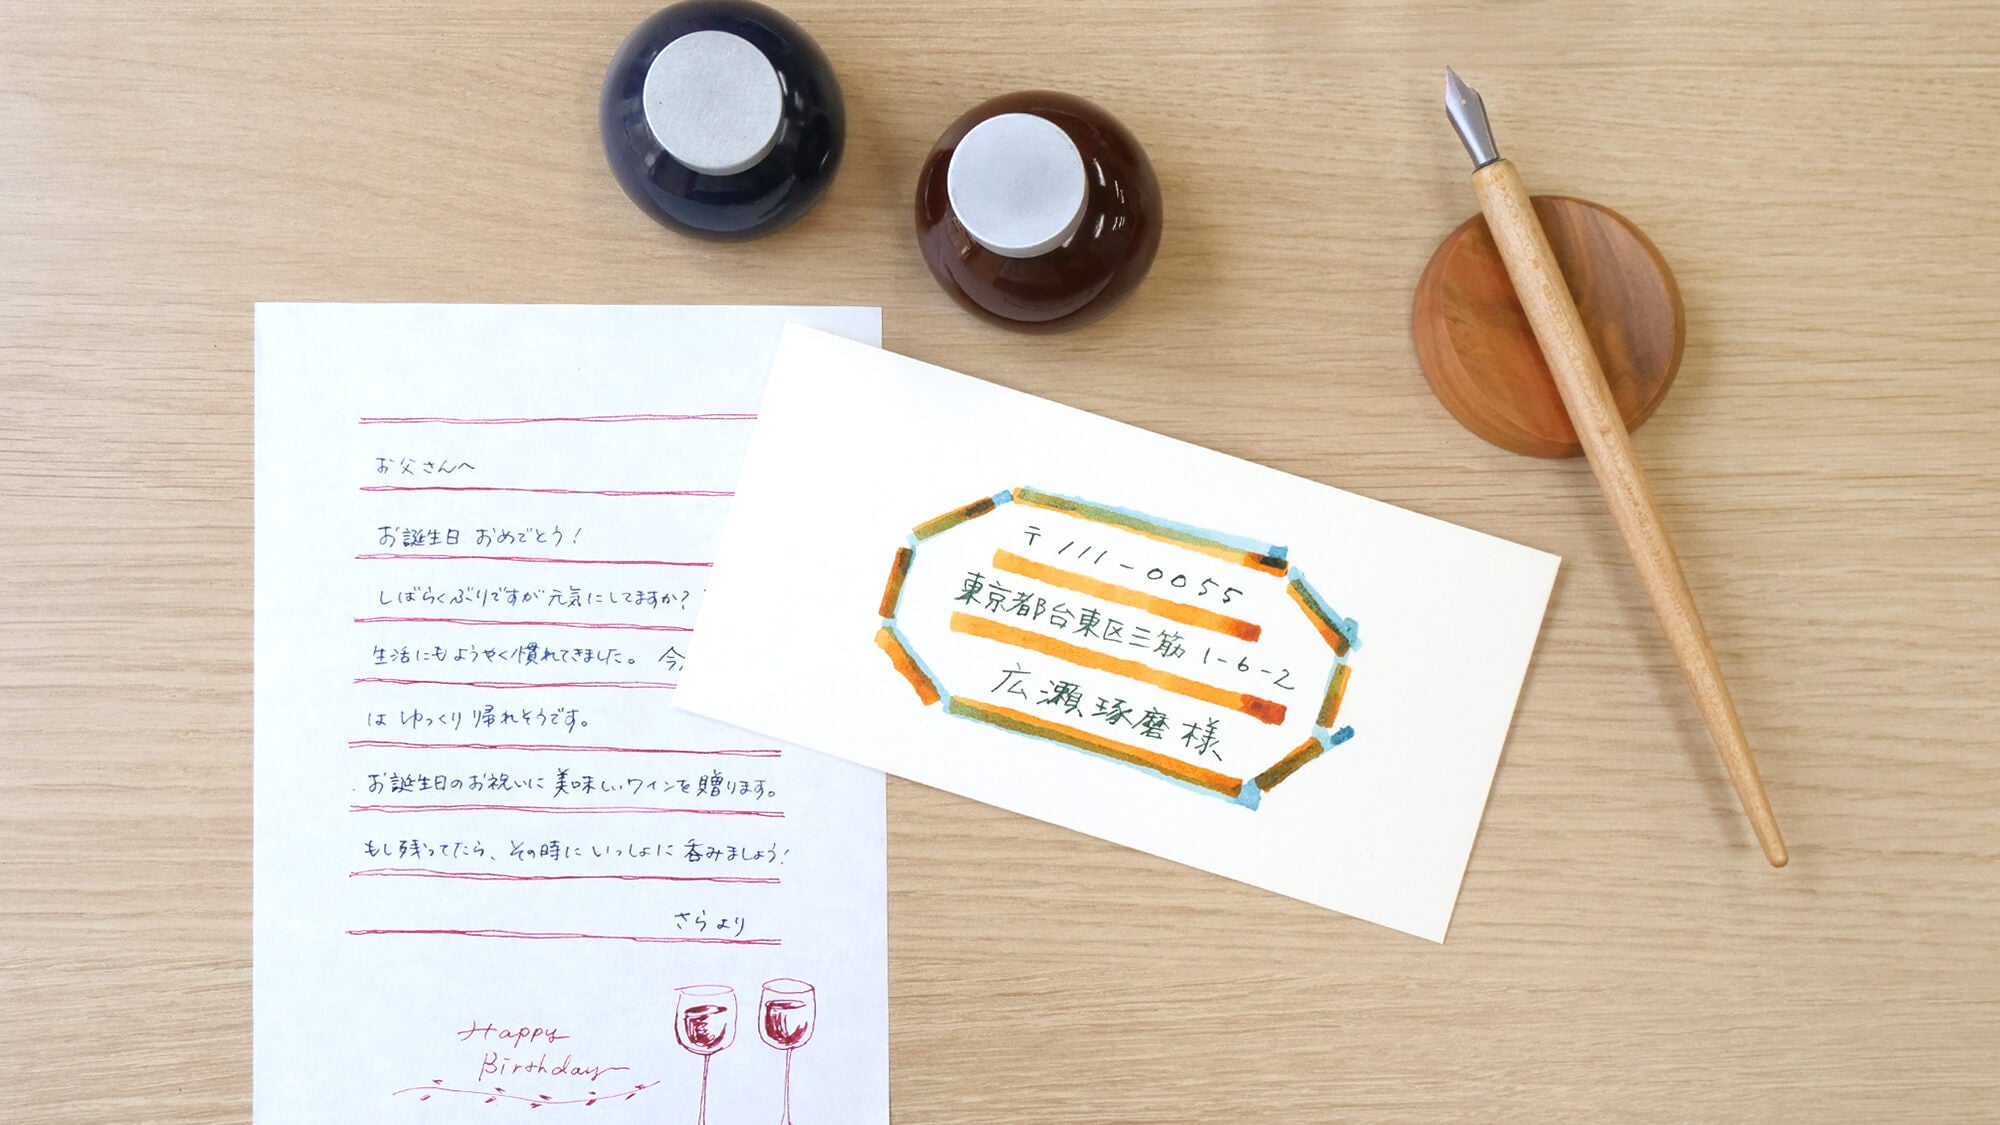 お父さんへ
お誕生日 おめでとう!
しばらくぶりですが元気にしてますか?
生活にもようやく慣れてきました。 今
は ゆっくり帰れそうです。
お誕生日のお祝いに美味しいワインを贈ります。
もし残ってたら、その時にいっしょに呑みましょう!
さらより
Happy
Birthday
〒111-0055
東京都台東区三筋 1-6-2
広瀬琢磨様